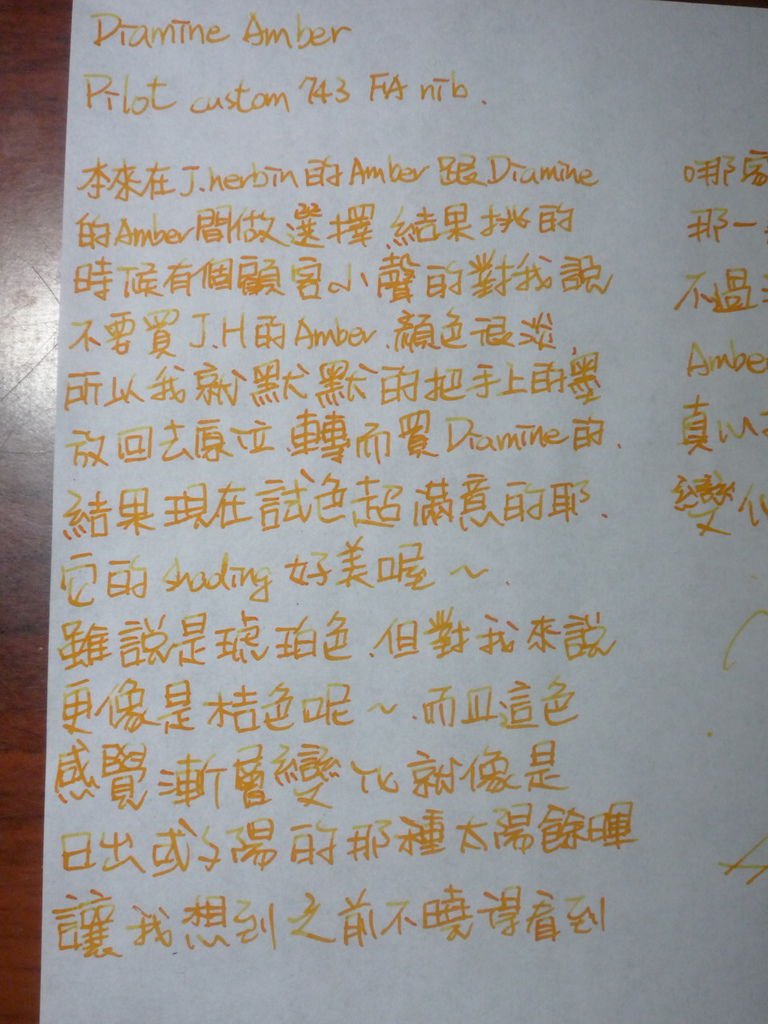 Diamine Amber
Pilot custom 743 FA nib.
本來在J.herbin的Amber跟Diamine
的Amber間做選擇,結果挑的
時候有個顧客小聲的對我說
不要買J.H的Amber.顏色很淡,
所以我就默默的把手上的墨
放回去原位,轉而買Diamine的.
結果現在試色超滿意的耶.
它的shading好美喔~.
雖說是琥珀色.但對我來說
更像是桔色呢~.而且這色
感覺漸層變化就像是
日出或夕陽的那種太陽餘暉
讓我想到之前不曉得看到
哪
那一
不過
Amber
真以
變化